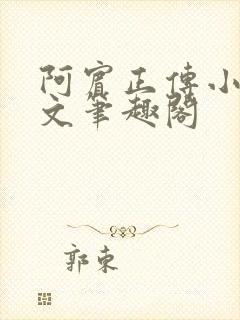 阿賓正傳小
文筆趣閣
郭東